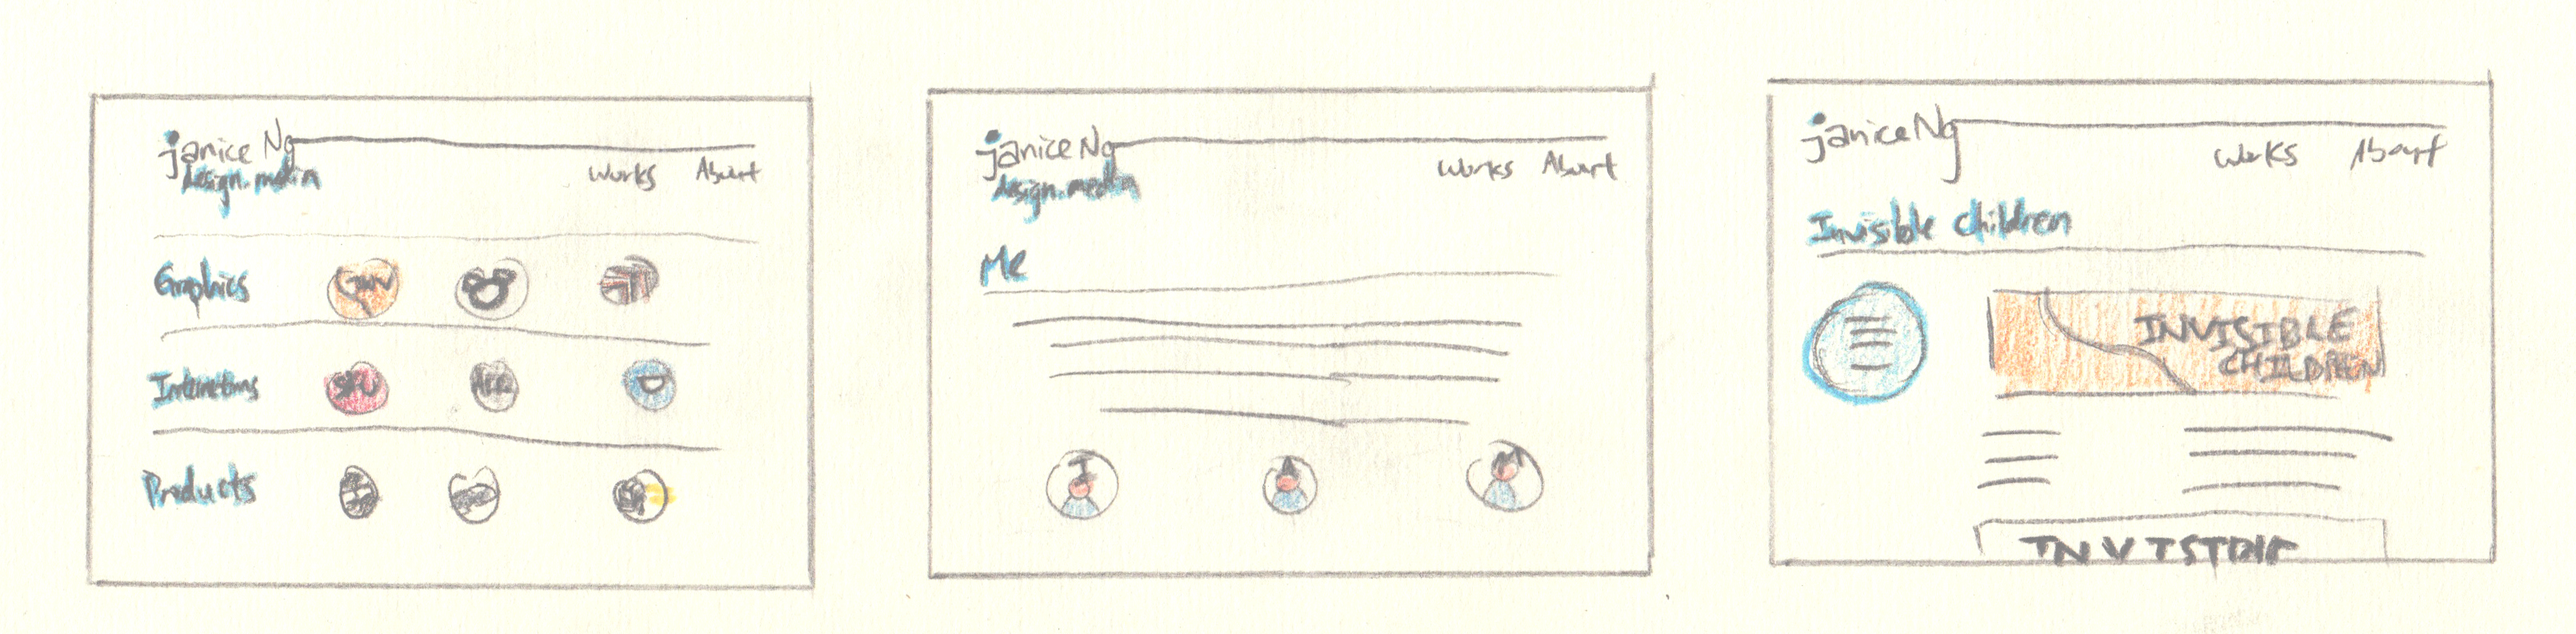 janice Ng
design.media
Works About
Graphics
Interactions
SKU
Products
janice Ng
design.media
Works About
Me
I
A
M
janice Ng
Works About
Invisible Children
INVISIBLE
CHILDREN